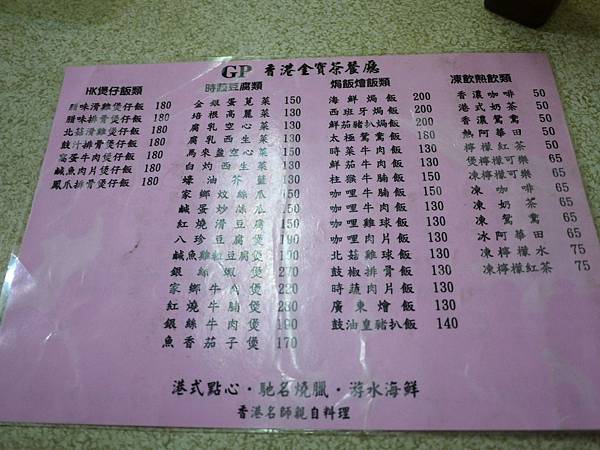 GP 香港金寶茶餐廳
HK煲仔飯類
腊味滑雞煲仔飯 180
腊味排骨煲仔飯 180
北菇滑雞煲仔飯 180
豉汁排骨煲仔飯 180
窩蛋牛肉煲仔飯 180
鹹魚肉片煲仔飯 180
鳳爪排骨煲仔飯 180
時蔬豆腐類
金銀蛋莧菜 150
培根高麗菜 130
腐乳空心菜 130
腐乳西生菜 130
馬來盞空心菜 150
白灼西生菜 130
蠔油芥蘭 130
家鄉炆絲瓜 150
鹹蛋炒涼瓜 150
紅燒滑豆腐 150
八珍豆腐煲 190
鹹魚雞粒豆腐煲 190
銀絲蝦煲
家鄉牛肉煲
紅燒牛腩煲
銀絲牛肉煲 190
魚香茄子煲 170
焗飯燴飯類
海鮮焗飯 200
西班牙焗飯 200
鮮茄豬扒焗飯 200
太極鴛鴦飯 180
時菜牛肉飯 130
鮮茄牛肉飯 130
柱猴牛腩飯 150
咖哩牛腩飯 150
咖哩牛肉飯 130
咖哩雞球飯 130
咖哩肉片飯 130
北菇雞球飯 130
鼓椒排骨飯 130
時蔬肉片飯 130
廣東燴飯 130
鼓油皇豬扒飯 140
凍飲熱飲類
香濃咖啡 50
港式奶茶 50
香濃鴛鴦 50
熱阿華田 50
檸檬紅茶 50
煲檸檬可樂 65
凍檸檬可樂 65
凍咖啡 65
凍奶茶 65
凍鴛鴦 65
冰阿華田 65
凍檸檬水 75
凍檸檬紅茶 75
港式點心・馳名燒臘・游水海鮮
香港名師親自料理